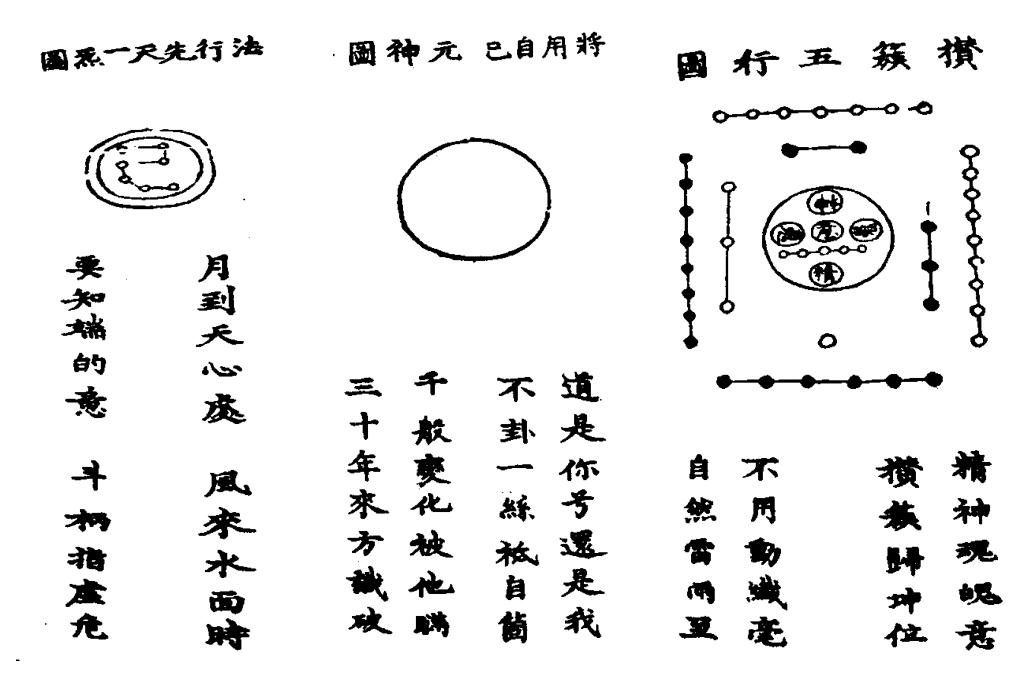 攢簇五行圖
神
意
精
精神魂魄意
攢簇歸坤位
不用動纖毫
自然雷雨至
將用自己元神圖
道是你号還是我
不卦一絲祗自箇
千般變化被他瞞
三十年來方識破
法行先天一炁圖
月到天心處 風來水面時
要知端的意 斗柄指虛危